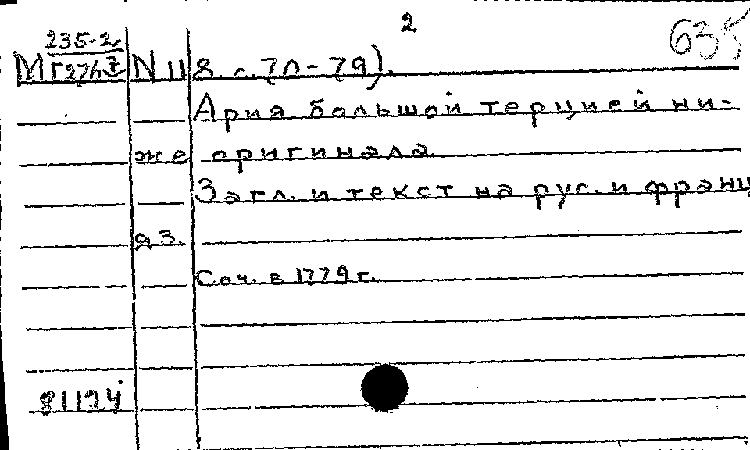 2
635
235-2
МГ276 № 118 с. 70-79).
Ария большой терцией ни-
же оригинала
Загл. и текст на рус. и франц
яз.
Соч. в 1779 г.
81124